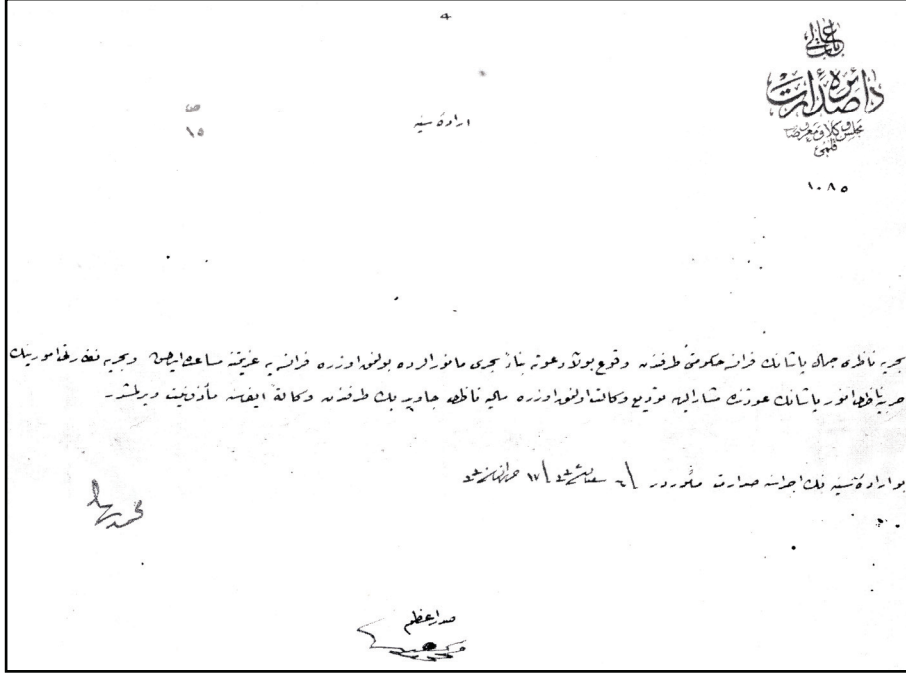 باب عالی
دائرۀ صدارت
مجلس وكلا و معروضات
قلمی
١٠٨٥
ارادۀ سنیه
١٥
بحریه ناظری جمال پاشانك فرانسه حكومتی طرفندن وقوع بولان دعوته بناءً بحری مانورالرده بولنمق اوزره فرانسه یه عزیمتنه مساعده ایدلمش و بحریه نظارتی امورینك
حربیه ناظری انور پاشانك عودتنده مشارالیه تودیع وكالت اولنمق اوزره مالیه ناظری جاوید بك طرفندن وكالةً ایفاسنه مأذونیت ویرلمشدر
بو ارادۀ سنیه نك اجراسنه صدارت مأموردر ٦ شعبان سنه ٣٣٢ / ١٧ حزیران سنه ٣٣٠
محمد رشاد
صدر اعظم
محمد سعید